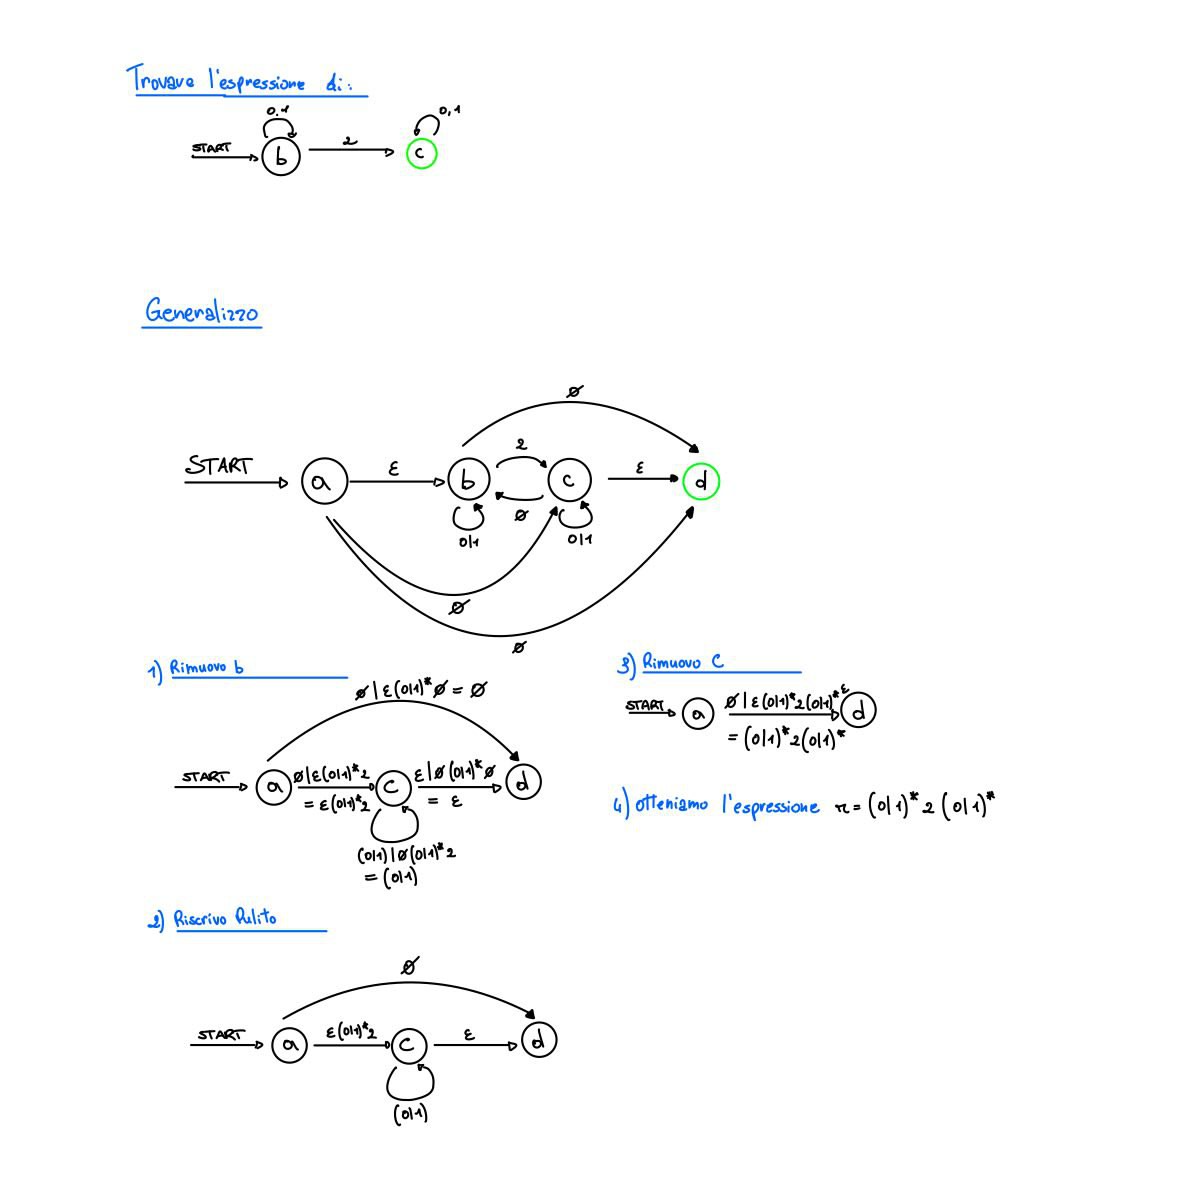 Trovare l'espressione di:
0,1
0,1
START
b
2
c
Generalizzo
∅
START
a
ε
b
2
c
ε
d
∅
0|1
0|1
∅
∅
1) Rimuovo b
∅ | ε(0|1)*∅ = ∅
START
a
∅|ε(0|1)*2
= ε(0|1)*2
c
ε|∅(0|1)*∅
= ε
d
(0|1)|∅(0|1)*2
= (0|1)
2) Riscrivo Pulito
∅
START
a
ε(0|1)*2
c
ε
d
(0|1)
3) Rimuovo C
START
a
∅ | ε(0|1)*2(0|1)*ε
d
= (0|1)*2(0|1)*
4) otteniamo l'espressione r = (0|1)* 2 (0|1)*